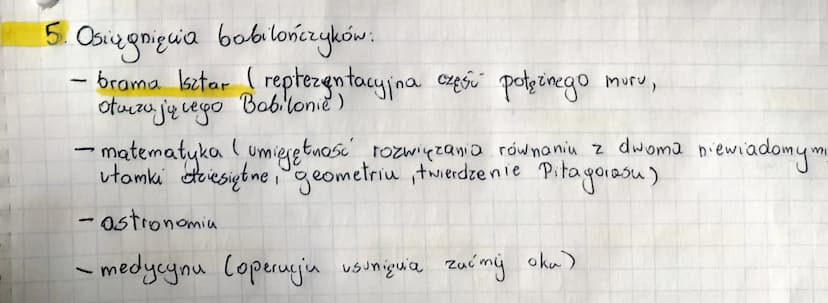 5. Osiągnięcia babilończyków:
- brama Isztar (reprezentacyjna część potężnego muru,
otaczającego Babilonię)
- matematyka (umiejętność rozwiązania równaniu z dwoma niewiadomymi
ułamki dziesiętne, geometria, twierdzenie Pitagorasa)
- astronomia
- medycyna (operacja usunięcia zaćmy oka)